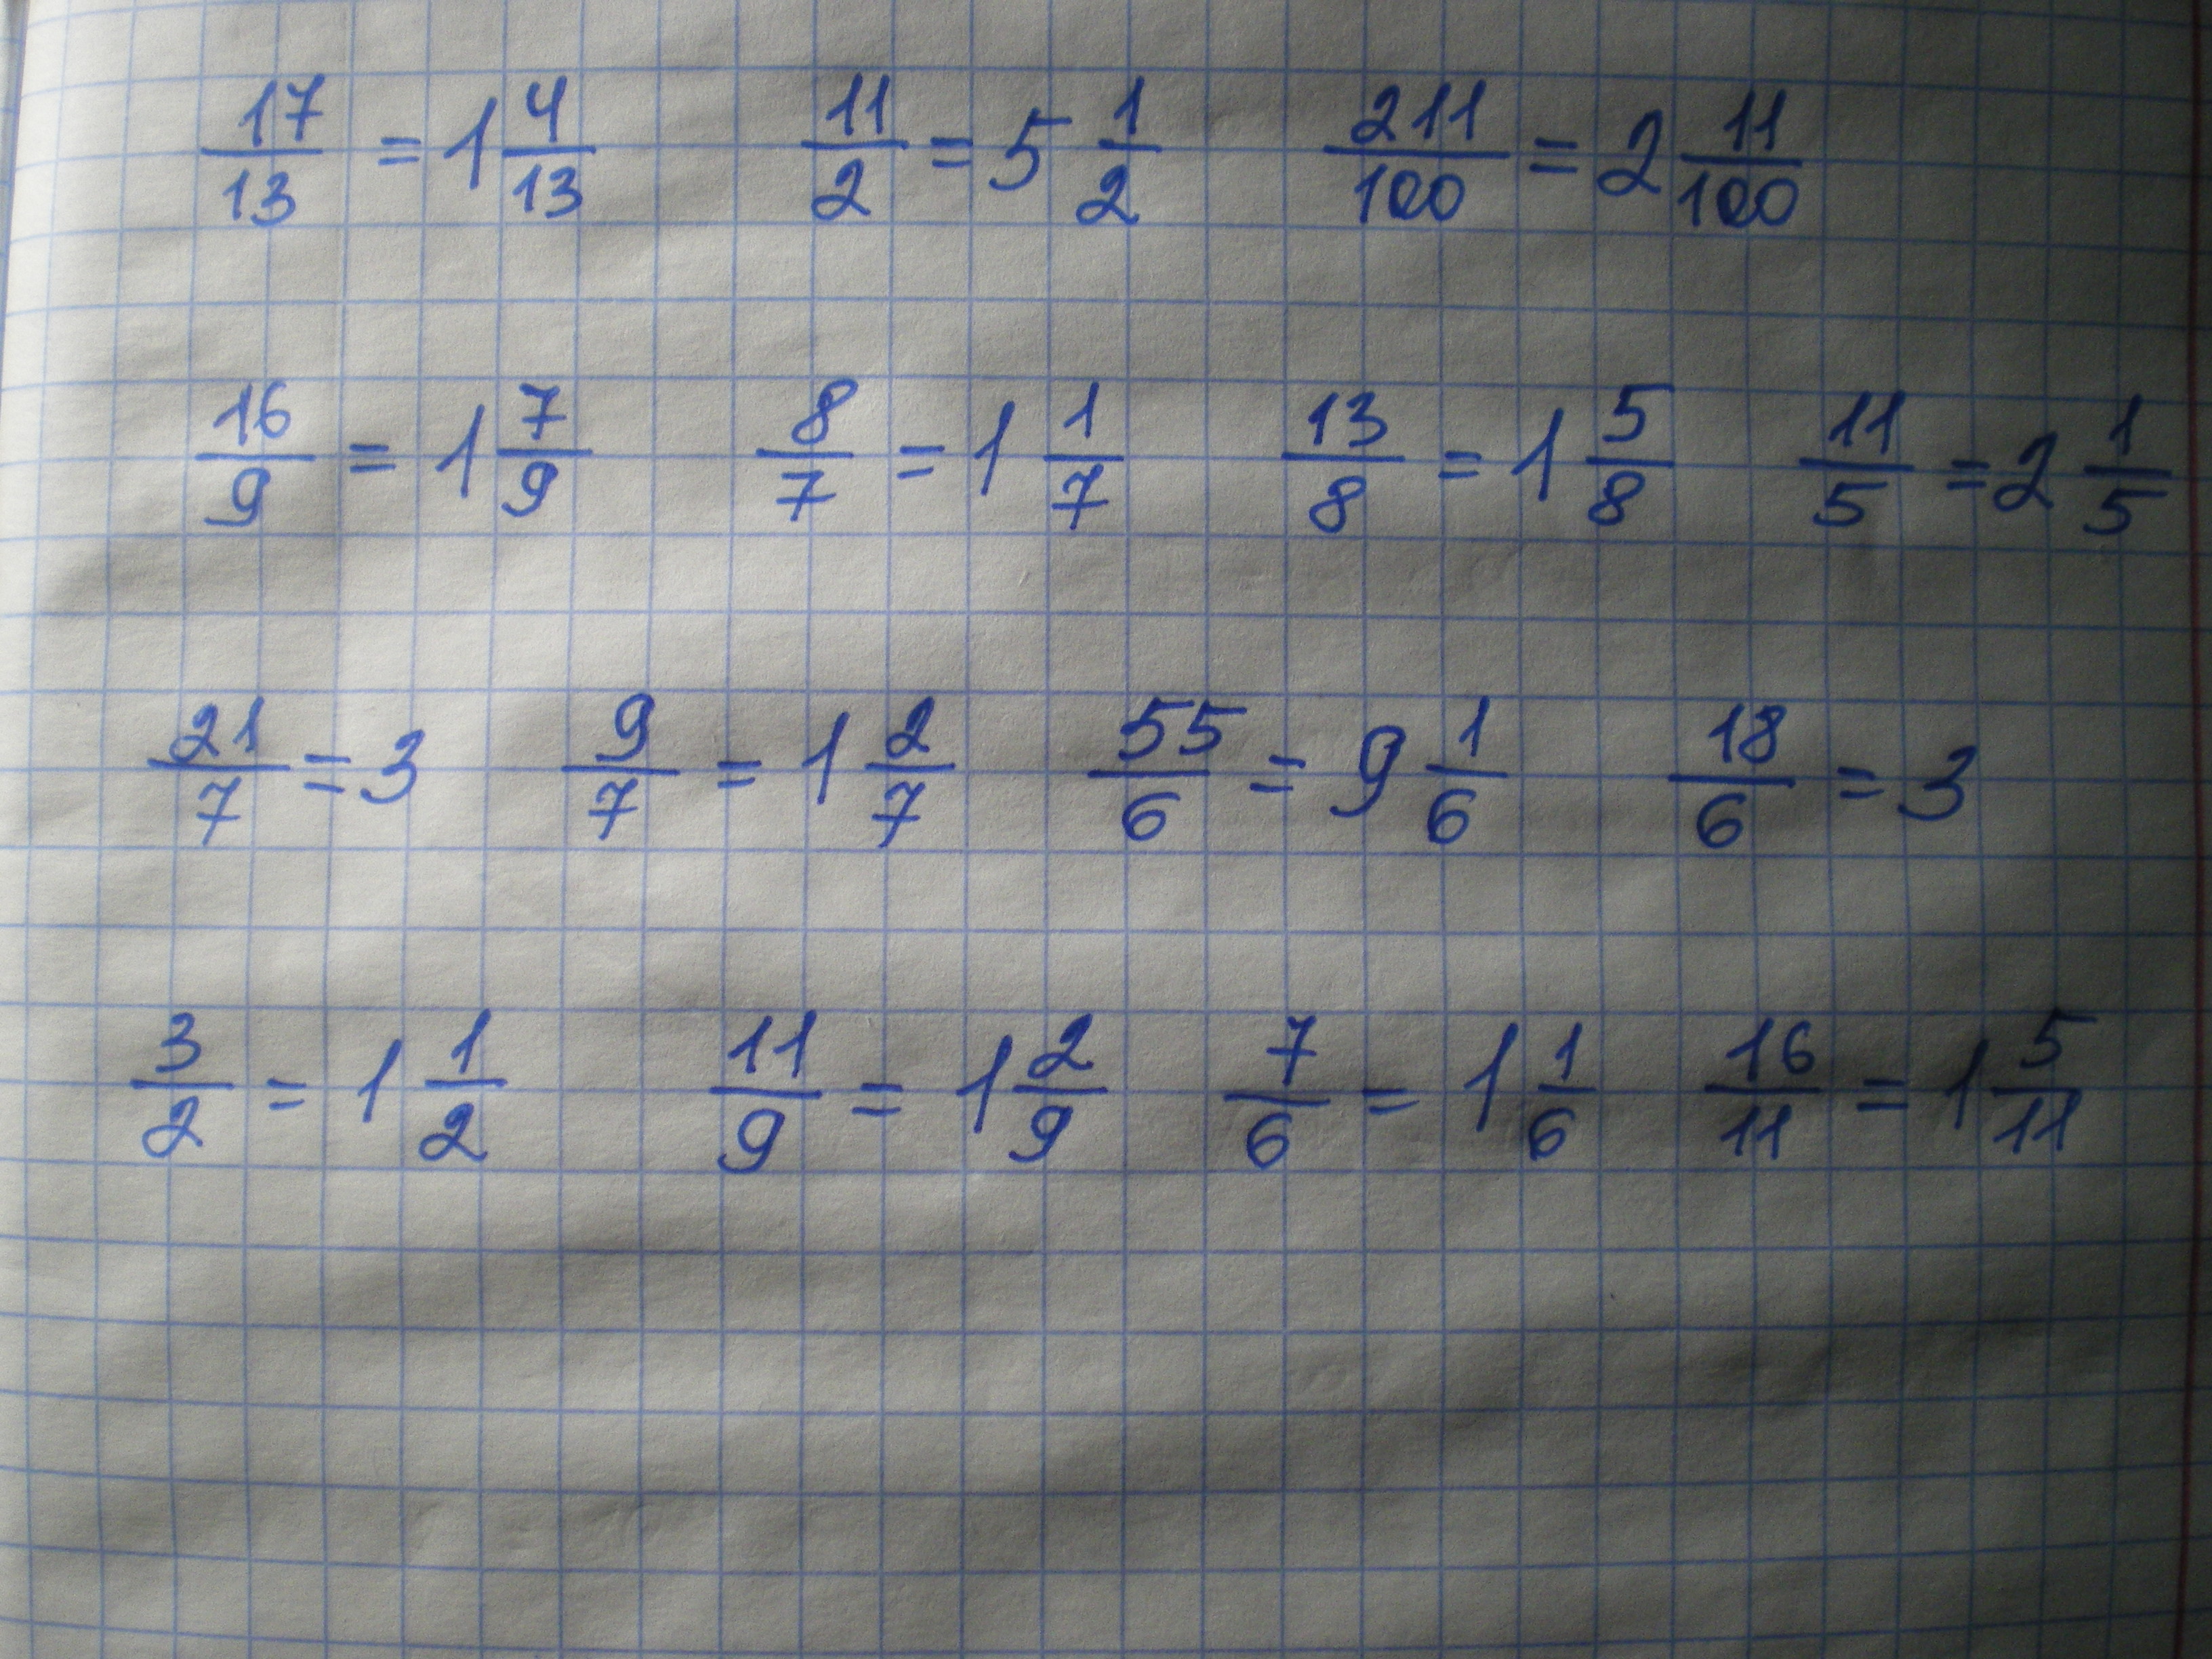 17/13 = 1 4/13 11/2 = 5 1/2 211/100 = 2 11/100
16/9 = 1 7/9 8/7 = 1 1/7 13/8 = 1 5/8 11/5 = 2 1/5
21/7 = 3 9/7 = 1 2/7 55/6 = 9 1/6 18/6 = 3
3/2 = 1 1/2 11/9 = 1 2/9 7/6 = 1 1/6 16/11 = 1 5/11